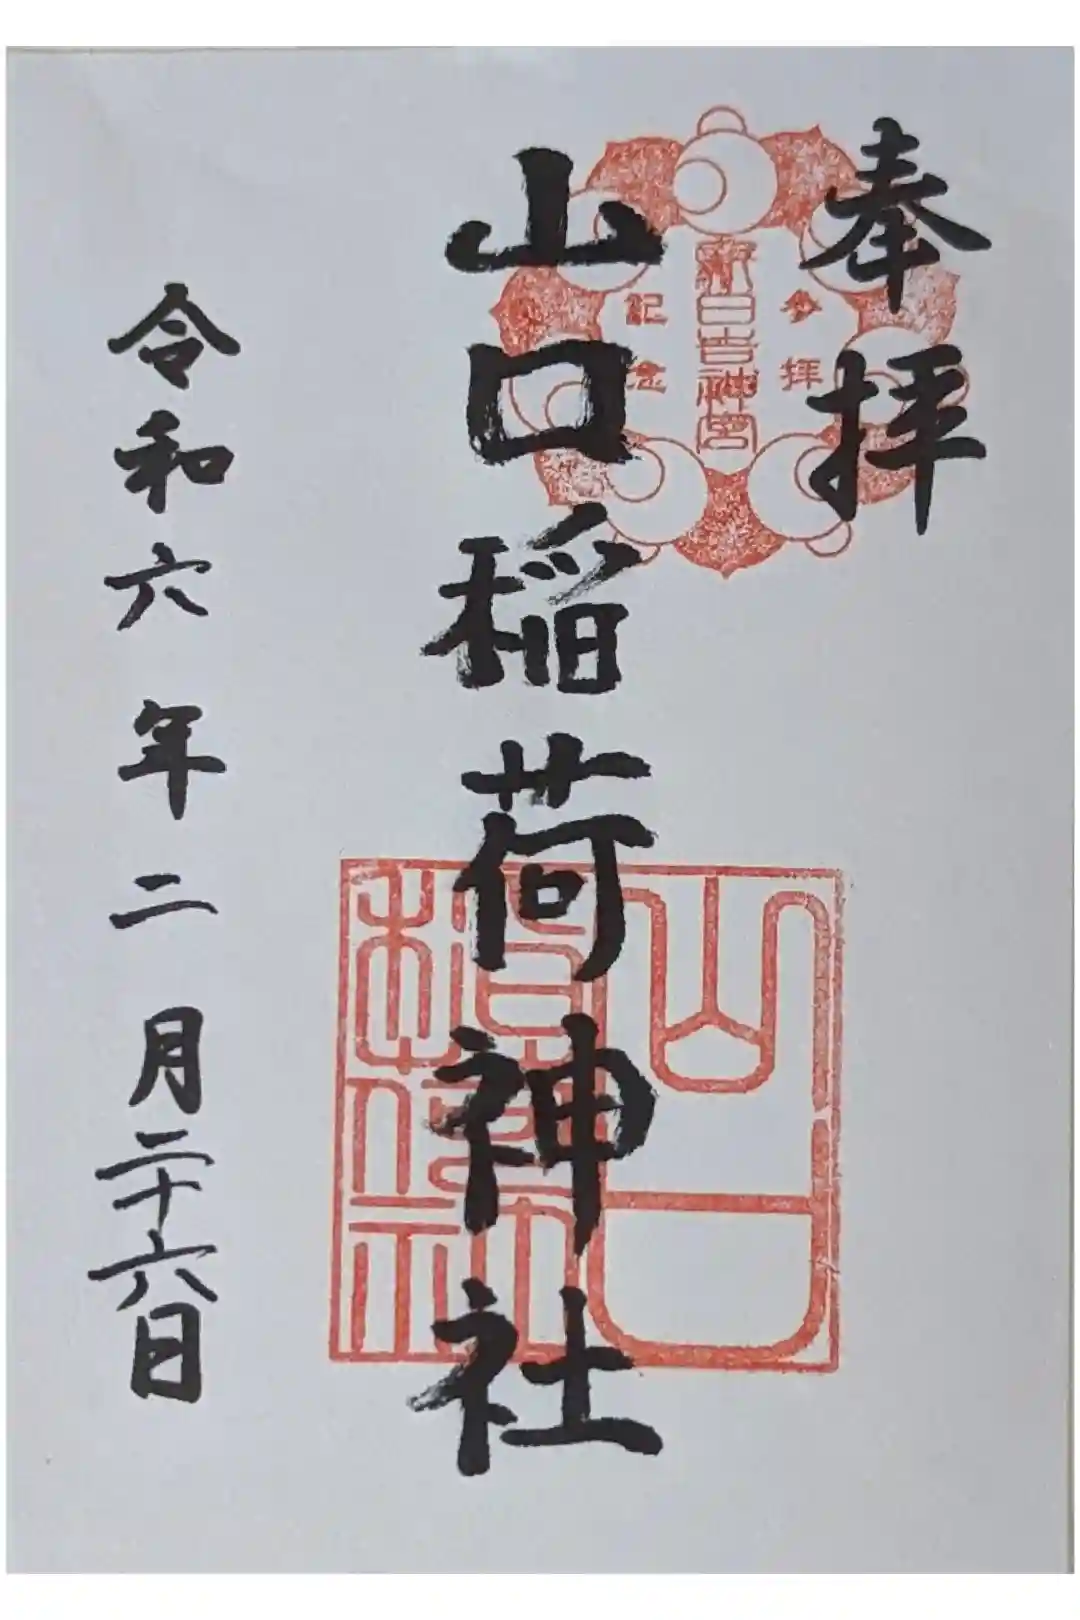 奉拝
参拝
新日吉神宮
記念
山口稲荷神社
令和六年二月二十六日